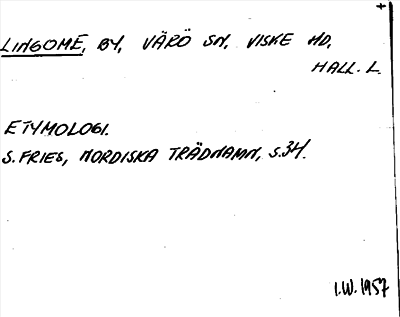 +
LINGOME, BY, VÄRÖ SN, VISKE HD,
HALL. L.
ETYMOLOGI.
S. FRIES, NORDISKA TRÄDNAMN, S.34.
I.W. 1957